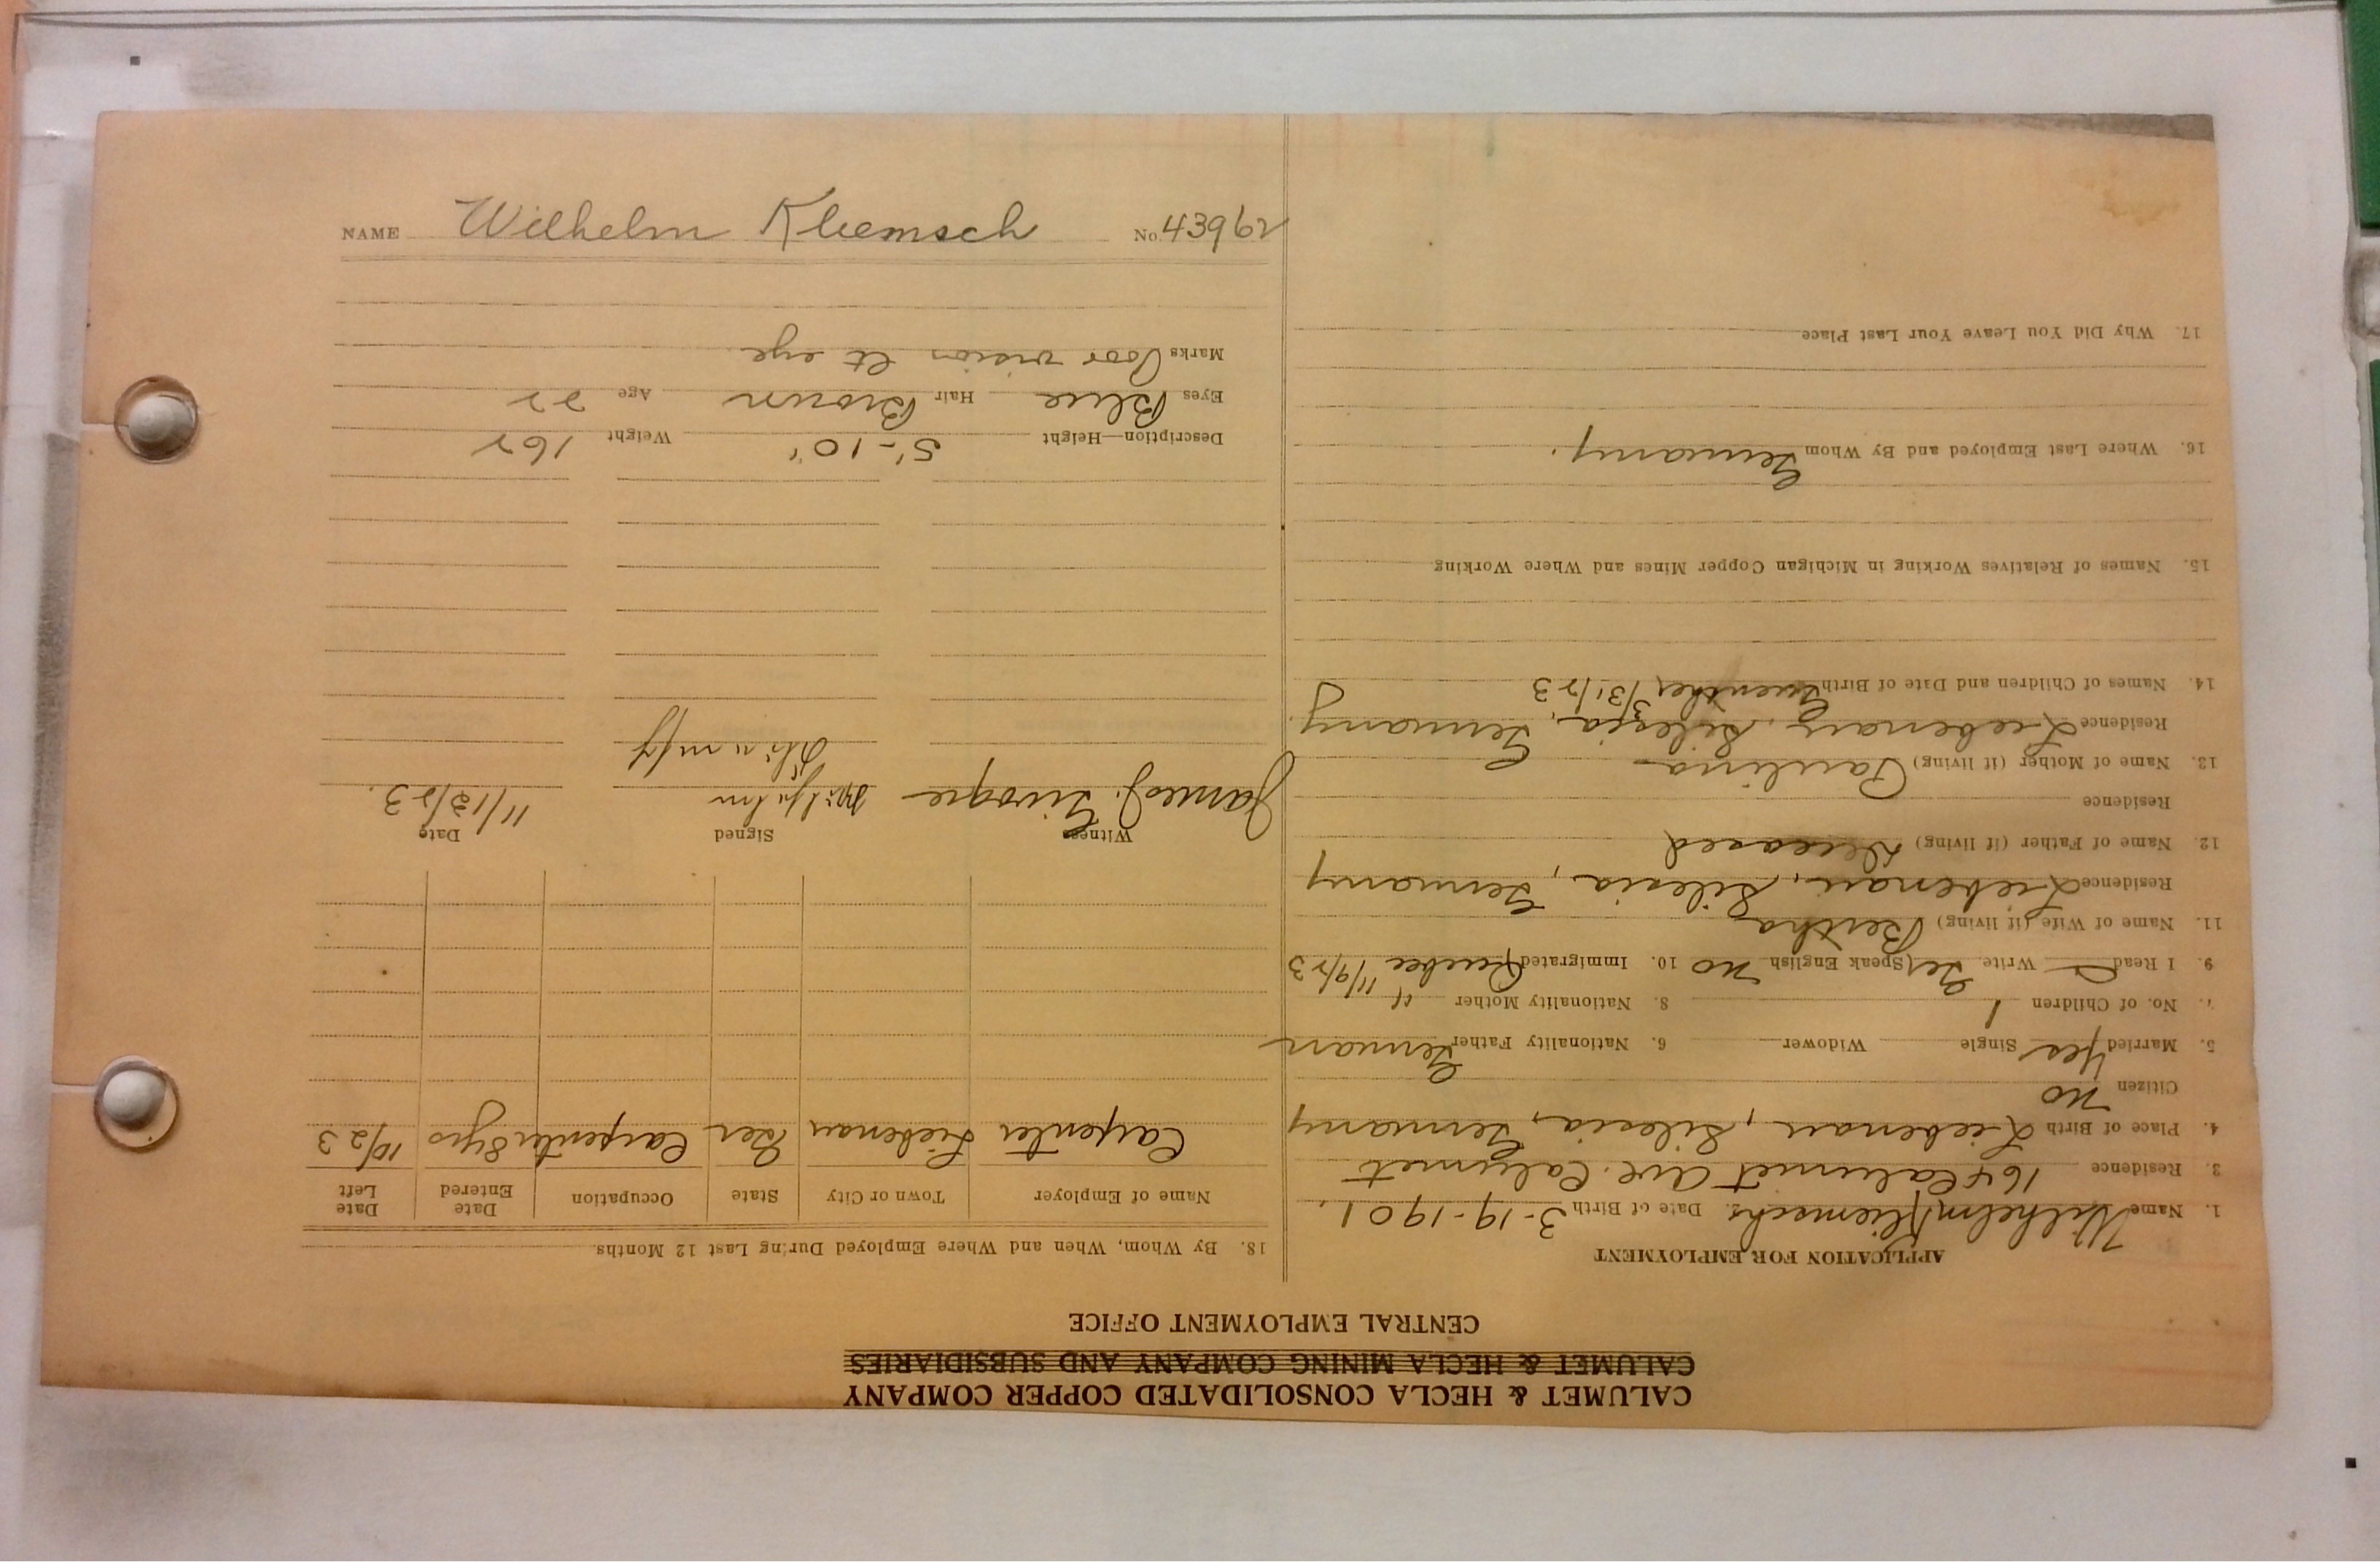 NAME Wilhelm Kliemsch No. 43962
CALUMET & HECLA CONSOLIDATED COPPER COMPANY
CALUMET & HECLA MINING COMPANY AND SUBSIDIARIES
CENTRAL EMPLOYMENT OFFICE
APPLICATION FOR EMPLOYMENT
1. Name Wilhelm Kliemsch 2. Date of Birth 3-19-1901.
3. Residence Calumet Ave. Calumet
4. Place of Birth Liebenau, Silesia, Germany
Citizen no
5. Married Yes Single Widower 6. Nationality Father German
7. No. of Children 1 8. Nationality Mother "
9. I Read Write Yes Speak English no 10. Immigrated Quebec 11/9/23
11. Name of Wife (if living) Bertha
Residence Liebenau, Silesia, Germany
12. Name of Father (if living) Deceased
Residence
13. Name of Mother (if living) Paulina
Residence Liebenau, Silesia, Germany
14. Names of Children and Date of Birth Guenther 3/31/23
15. Names of Relatives Working in Michigan Copper Mines and Where Working
16. Where Last Employed and By Whom Germany.
17. Why Did You Leave Your Last Place
18. By Whom, When and Where Employed During Last 12 Months
Name of Employer Town or City State Occupation Date Entered Date Left
Carpenter Liebenau Ger Carpenter 8 yrs 10/23
Witness Signed Date
James J. Wilhelm 11/12/23.
Description—Height 5'-10" Weight 162
Eyes Blue Hair Brown Age 22
Marks Poor vision lt eye